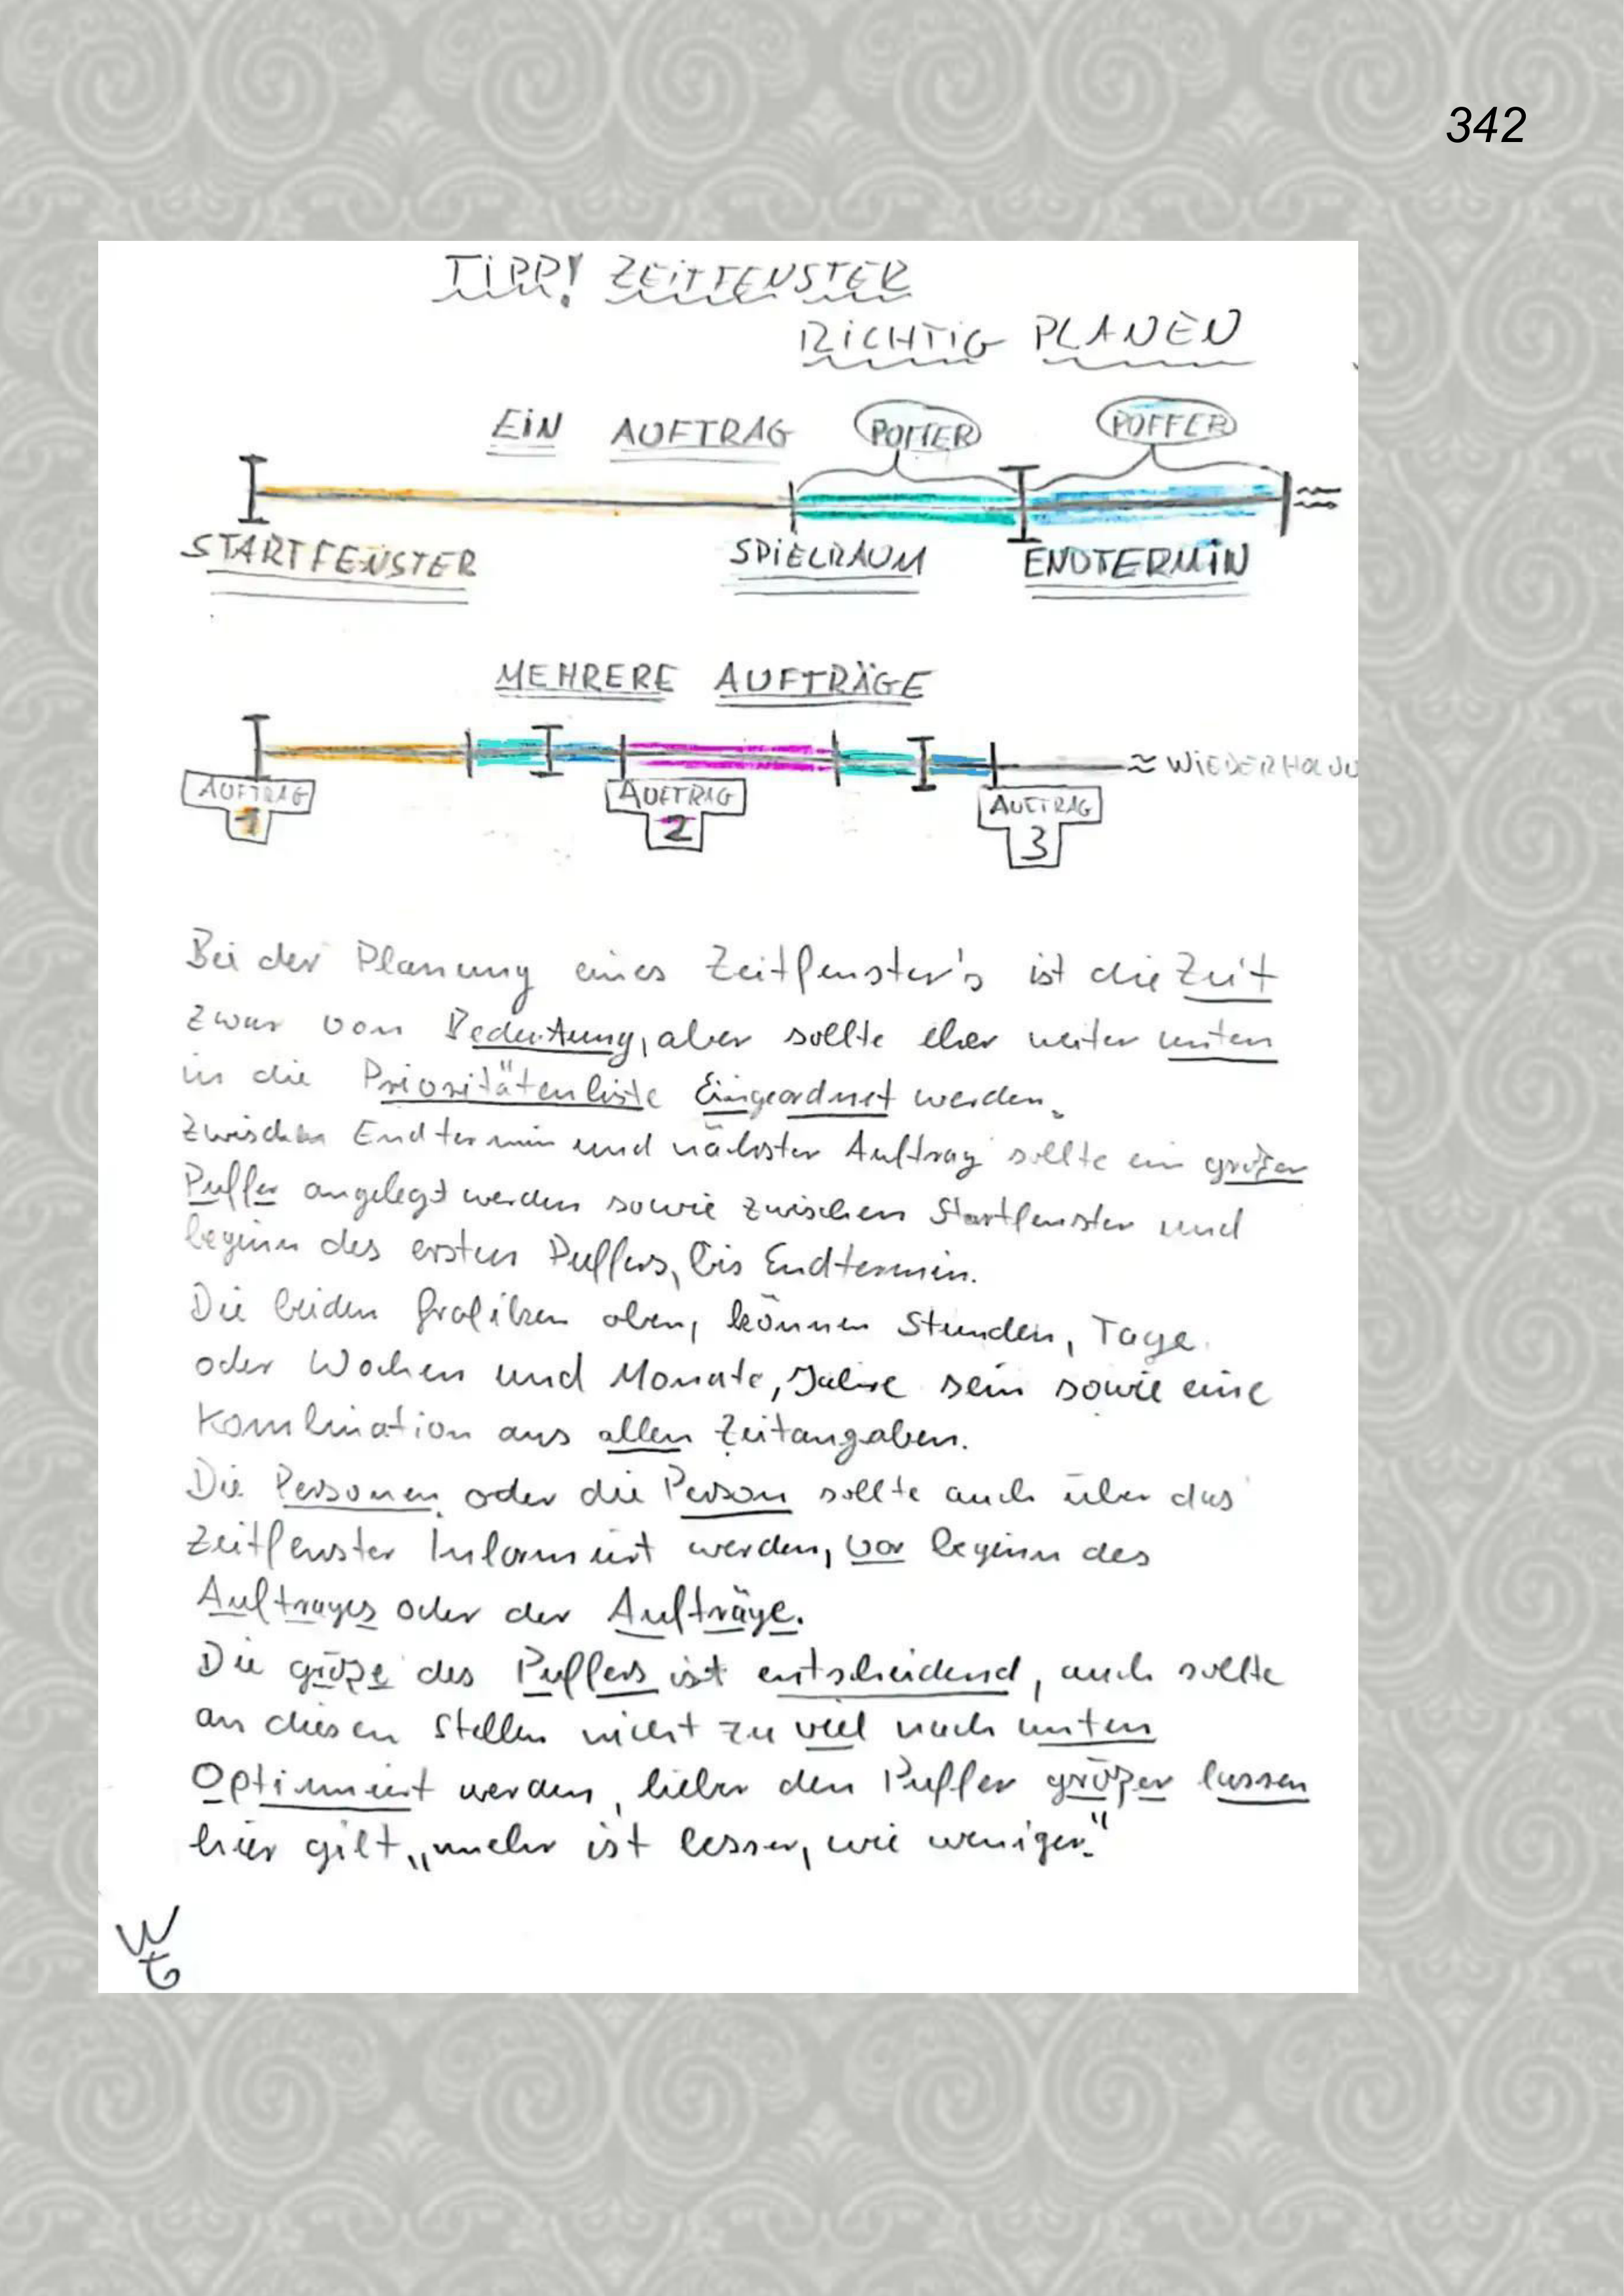 342
TIPP! ZEITFENSTER
RICHTIG PLANEN
EIN AUFTRAG PUFFER PUFFER
STARTFENSTER SPIELRAUM ENDTERMIN
MEHRERE AUFTRÄGE
≈ WIEDERHOLU
AUFTRAG AUFTRAG AUFTRAG
1 2 3
Bei der Planung eines Zeitfenster's ist die Zeit
zwar von Bedeutung, aber sollte eher weiter unten
in die Prioritätenliste Eingeordnet werden.
Zwischen Endtermin und nächster Auftrag sollte ein großer
Puffer angelegt werden sowie zwischen Startfenster und
beginn des ersten Puffers, bis Endtermin.
Die beiden Grafiken oben, können Stunden, Tage
oder Wochen und Monate, Jahre sein sowie eine
Kombination aus allen Zeitangaben.
Die Personen oder die Person sollte auch über das
Zeitfenster Informiert werden, vor beginn des
Auftrages oder der Aufträge.
Die größe des Puffers ist entscheidend, auch sollte
an diesen Stellen nicht zu viel nach unten
Optimiert werden, lieber den Puffer größer lassen
hier gilt „mehr ist besser, wie weniger."
WG